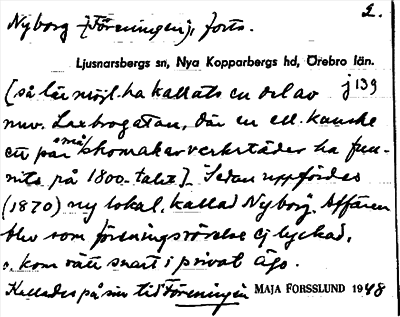 2.
Nyborg [Föreningen], forts.
Ljusnarsbergs sn, Nya Kopparbergs hd, Örebro län.
j 139
[så lär möjl. ha kallats en del av
nuv. Laxbrogatan, där en ell. kanske
ett par små skomakarverkstäder ha fun-
nits på 1800-talet]. Sedan uppfördes
(1870) ny lokal, kallad Nyborg. Affären
blev som föreningsrörelse ej lyckad,
o. kom rätt snart i privat ägo.
Kallades på sin tid Föreningen MAJA FORSSLUND 1948